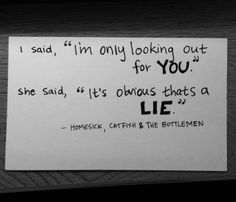 I said, "I'm only looking out
for YOU."
she said, "It's obvious thats a
LIE."
— HOMESICK, CATFISH & THE BOTTLEMEN